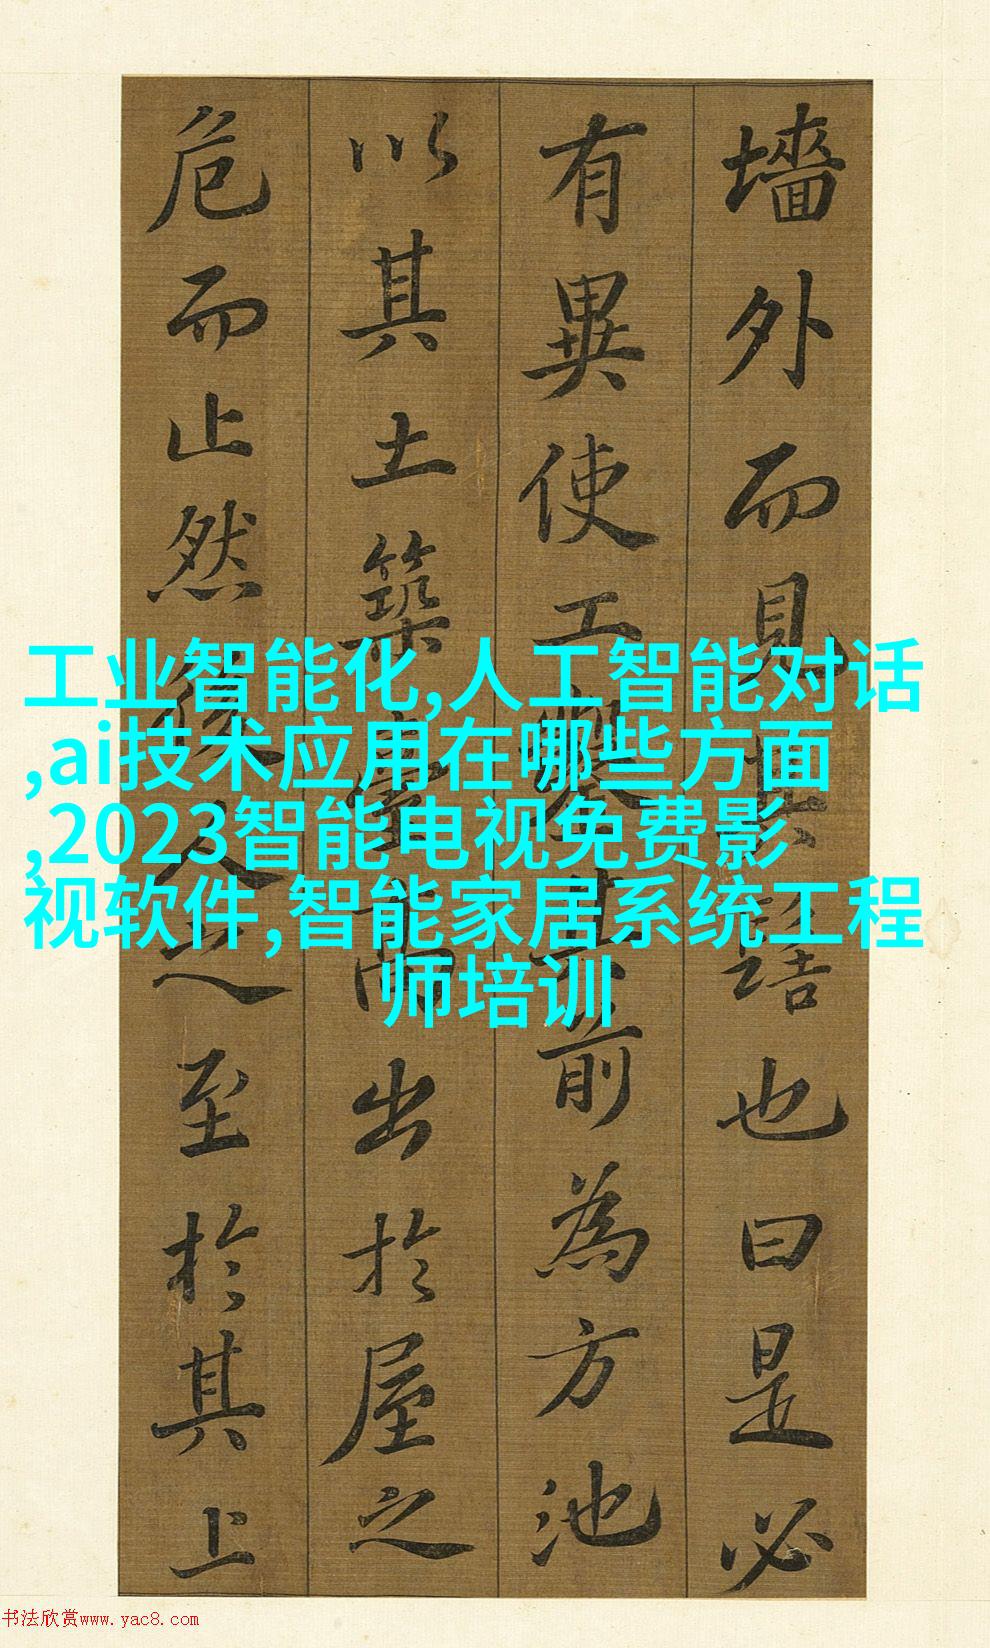 墻外而見其髻也曰是必
有異使工鑿其前為方池
以其土築臺高出於屋之
危而止然後人之至於其上
工业智能化,人工智能对话
,ai技术应用在哪些方面
,2023智能电视免费影
视软件,智能家居系统工程
师培训
书法欣赏www.yac8.com